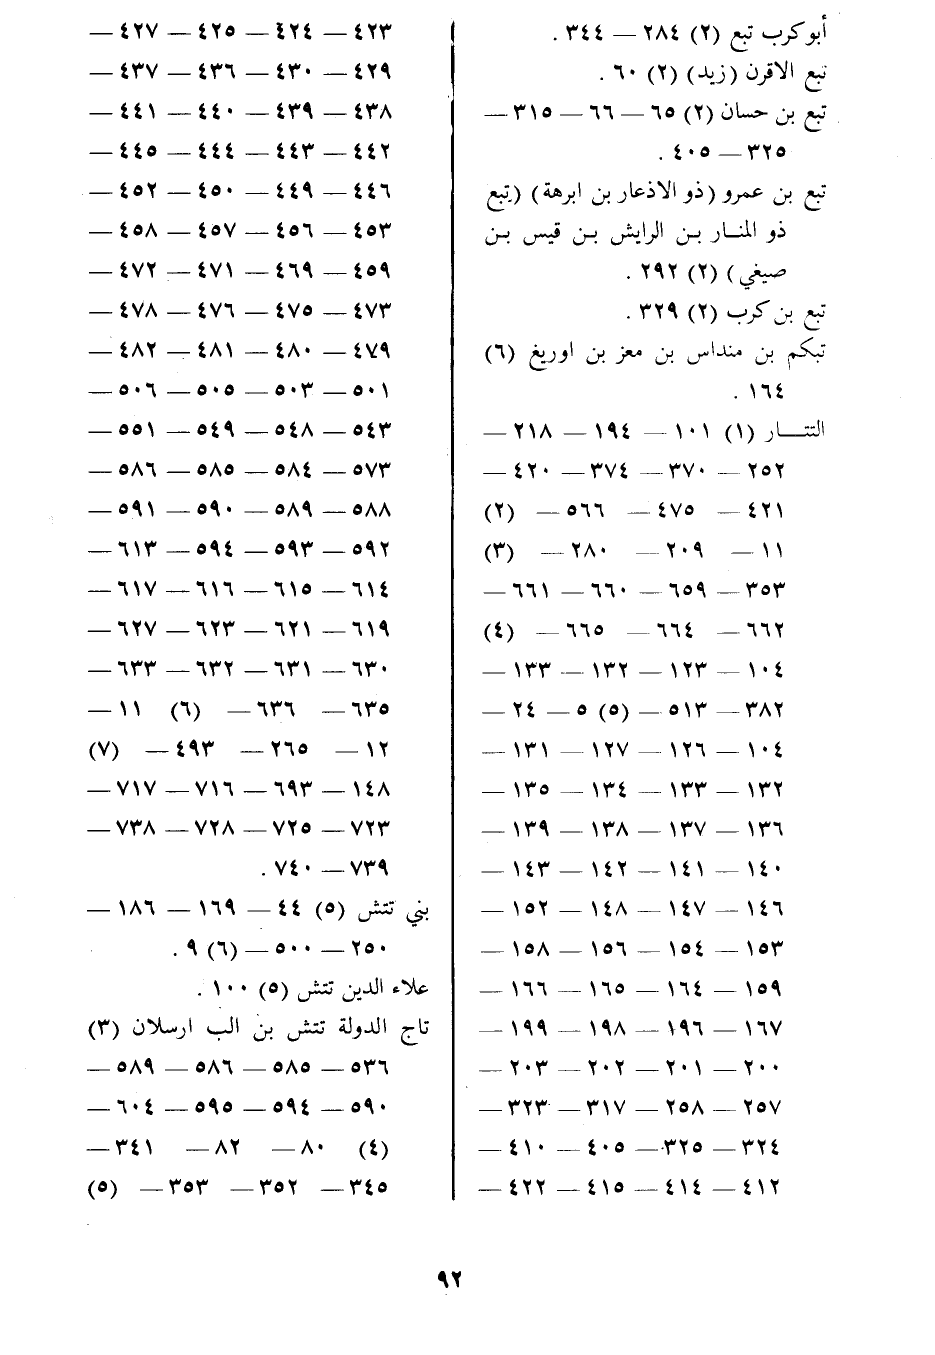 أبو كرب تبع (٢) ٢٨٤ — ٣٤٤ .
تبع الاقرن (زيد) (٢) ٦٠ .
تبع بن حسان (٢) ٦٥ — ٦٦ — ٣١٥ —
٣٢٥ — ٤٠٥ .
تبع بن عمرو (ذو الاذعار بن ابرهة) (تبع
ذو المنــار بـن الرايش بـن قيس بـن
صيغي) (٢) ٢٩٢ .
تبع بن كرب (٢) ٣٢٩ .
تبكم بن منداس بن معز بن اوريغ (٦)
١٦٤ .
التتــار (١) ١٠١ — ١٩٤ — ٢١٨ —
٢٥٢ — ٣٧٠ — ٣٧٤ — ٤٢٠ —
٤٢١ — ٤٧٥ — ٥٦٦ — (٢)
١١ — ٢٠٩ — ٢٨٠ — (٣)
٣٥٣ — ٦٥٩ — ٦٦٠ — ٦٦١ —
٦٦٢ — ٦٦٤ — ٦٦٥ — (٤)
١٠٤ — ١٢٣ — ١٣٢ — ١٣٣ —
٣٨٢ — ٥١٣ — (٥) ٥ — ٢٤ —
١٠٤ — ١٢٦ — ١٢٧ — ١٣١ —
١٣٢ — ١٣٣ — ١٣٤ — ١٣٥ —
١٣٦ — ١٣٧ — ١٣٨ — ١٣٩ —
١٤٠ — ١٤١ — ١٤٢ — ١٤٣ —
١٤٦ — ١٤٧ — ١٤٨ — ١٥٢ —
١٥٣ — ١٥٤ — ١٥٦ — ١٥٨ —
١٥٩ — ١٦٤ — ١٦٥ — ١٦٦ —
١٦٧ — ١٩٦ — ١٩٨ — ١٩٩ —
٢٠٠ — ٢٠١ — ٢٠٢ — ٢٠٣ —
٢٥٧ — ٢٥٨ — ٣١٧ — ٣٢٣ —
٣٢٤ — ٣٢٥ — ٤٠٥ — ٤١٠ —
٤١٢ — ٤١٤ — ٤١٥ — ٤٢٢ —
٤٢٣ — ٤٢٤ — ٤٢٥ — ٤٢٧ —
٤٢٩ — ٤٣٠ — ٤٣٦ — ٤٣٧ —
٤٣٨ — ٤٣٩ — ٤٤٠ — ٤٤١ —
٤٤٢ — ٤٤٣ — ٤٤٤ — ٤٤٥ —
٤٤٦ — ٤٤٩ — ٤٥٠ — ٤٥٢ —
٤٥٣ — ٤٥٦ — ٤٥٧ — ٤٥٨ —
٤٥٩ — ٤٦٩ — ٤٧١ — ٤٧٢ —
٤٧٣ — ٤٧٥ — ٤٧٦ — ٤٧٨ —
٤٧٩ — ٤٨٠ — ٤٨١ — ٤٨٢ —
٥٠١ — ٥٠٣ — ٥٠٥ — ٥٠٦ —
٥٤٣ — ٥٤٨ — ٥٤٩ — ٥٥١ —
٥٧٣ — ٥٨٤ — ٥٨٥ — ٥٨٦ —
٥٨٨ — ٥٨٩ — ٥٩٠ — ٥٩١ —
٥٩٢ — ٥٩٣ — ٥٩٤ — ٦١٣ —
٦١٤ — ٦١٥ — ٦١٦ — ٦١٧ —
٦١٩ — ٦٢١ — ٦٢٣ — ٦٢٧ —
٦٣٠ — ٦٣١ — ٦٣٢ — ٦٣٣ —
٦٣٥ — ٦٣٦ — (٦) ١١ —
١٢ — ٢٦٥ — ٤٩٣ — (٧)
١٤٨ — ٦٩٣ — ٧١٦ — ٧١٧ —
٧٢٣ — ٧٢٥ — ٧٢٨ — ٧٣٨ —
٧٣٩ — ٧٤٠ .
بني تتش (٥) ٤٤ — ١٦٩ — ١٨٦ —
٢٥٠ — ٥٠٠ — (٦) ٩ .
علاء الدين تتش (٥) ١٠٠ .
تاج الدولة تتش بن الب ارسلان (٣)
٥٣٦ — ٥٨٥ — ٥٨٦ — ٥٨٩ —
٥٩٠ — ٥٩٤ — ٥٩٥ — ٦٠٤ —
(٤) ٨٠ — ٨٢ — ٣٤١ —
٣٤٥ — ٣٥٢ — ٣٥٣ — (٥)
٩٢